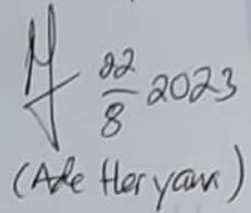 22/8 2023
(Ade Heryani)